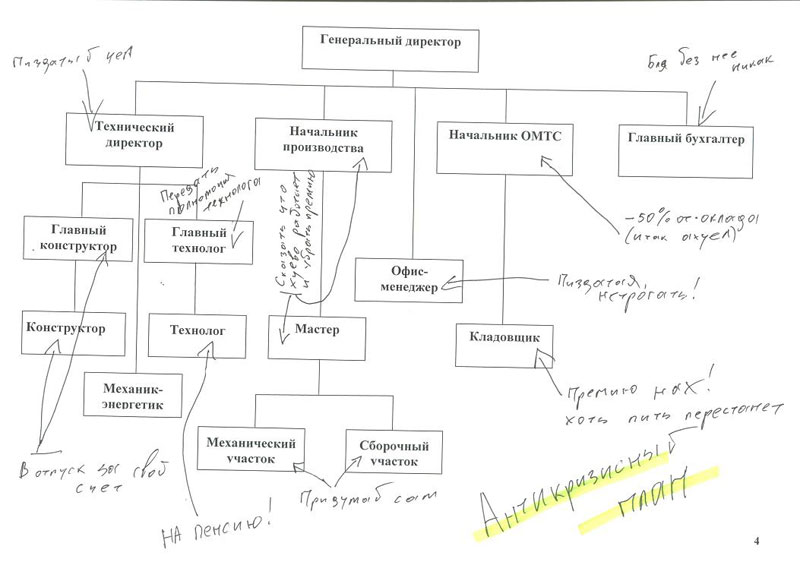 Генеральный директор
Пиздатый чел
Бля без нее
никак
Технический
директор
Начальник
производства
Начальник ОМТС
Главный бухгалтер
Передать
полномочия
технолога
Сказать что
хуево работает
и убрать премию
Главный
конструктор
Главный
технолог
-50% от оклада
(итак охуел)
Офис-
менеджер
Пиздатая,
нетрогать!
Конструктор
Технолог
Мастер
Кладовщик
Механик-
энергетик
Премию нах!
хоть пить перестанет
Механический
участок
Сборочный
участок
В отпуск за свой
счет
На пенсию!
Придумаю сам
Антикризисный
план
4